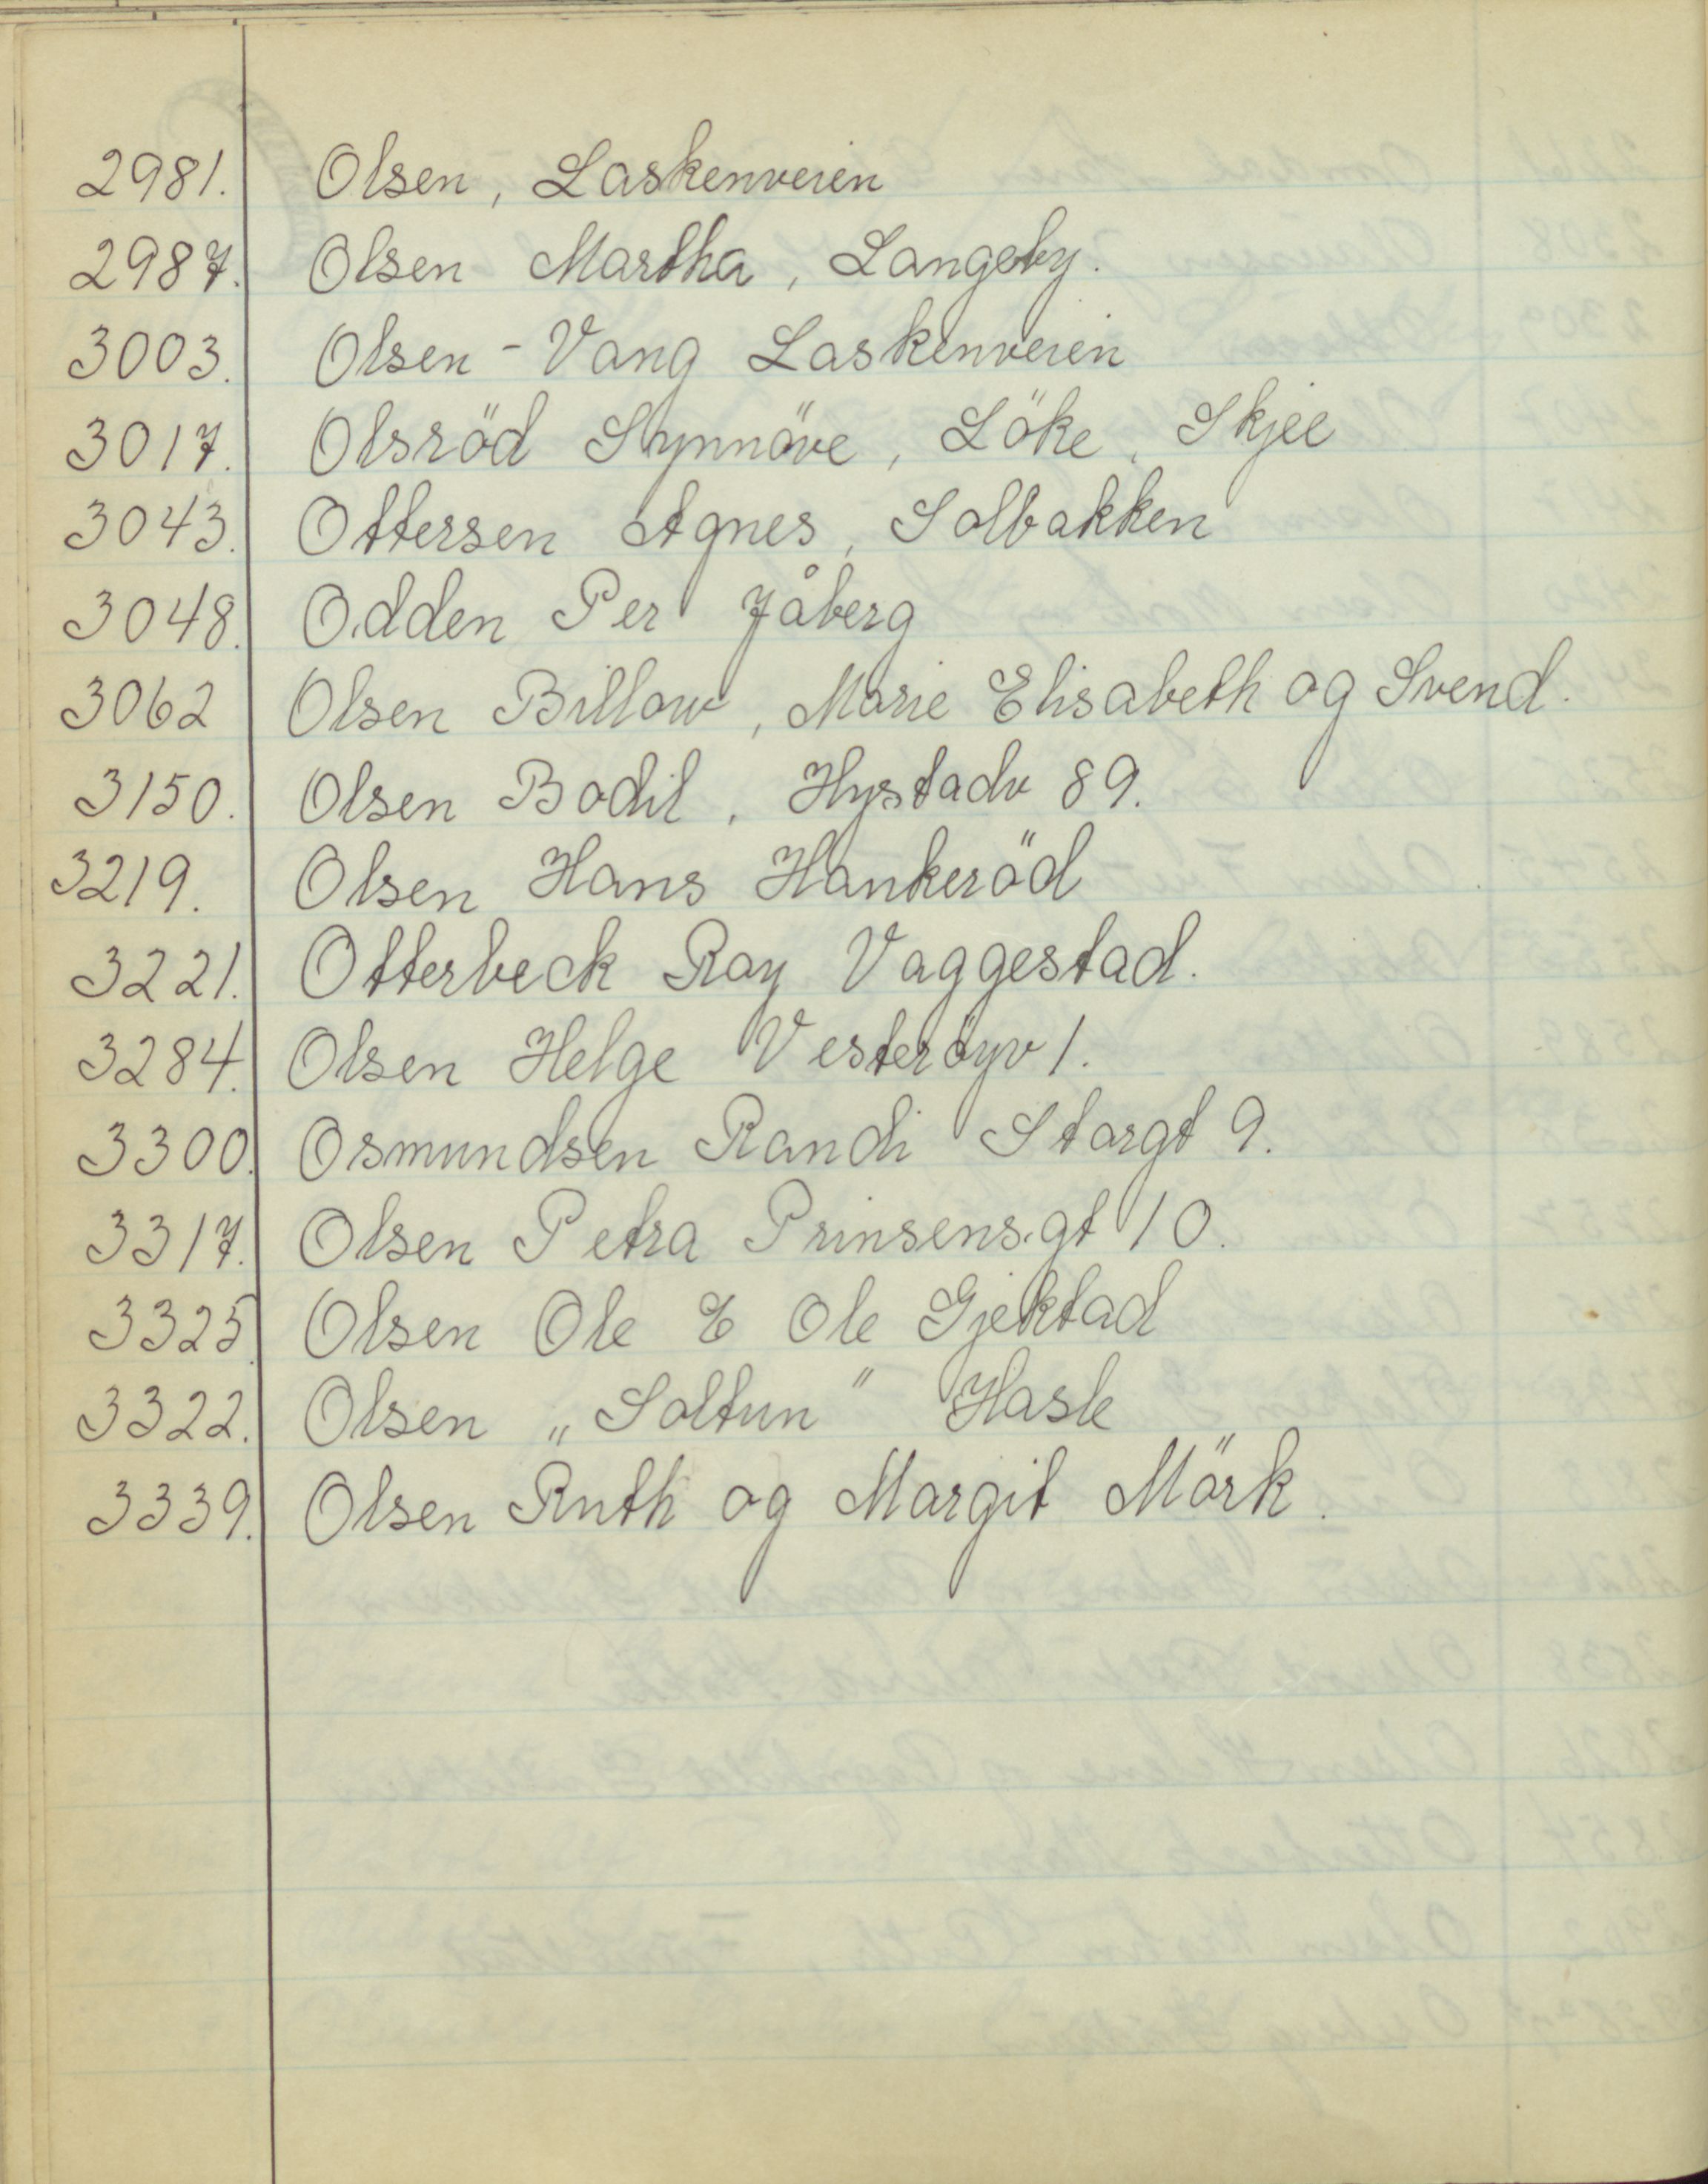 2981. Olsen, Laskenveien
2987. Olsen Martha, Langeby.
3003. Olsen - Vang Laskenveien
3017. Olsröd Synnöve, Löke, Skjee
3043. Ottersen Agnes, Solbakken
3048. Odden Per Jåberg
3062 Olsen Billow, Marie Elisabeth og Svend.
3150. Olsen Bodil, Hystadv 89.
3219. Olsen Hans Hankeröd
3221. Otterbeck Roy Vaggestad.
3284. Olsen Helge Vesteröyv 1.
3300. Osmundsen Randi Storgt 9.
3317. Olsen Petra Prinsens.gt 10.
3325. Olsen Ole E Ole Gjekstad
3322. Olsen „Soltun" Hasle
3339. Olsen Ruth og Margit Mörk.